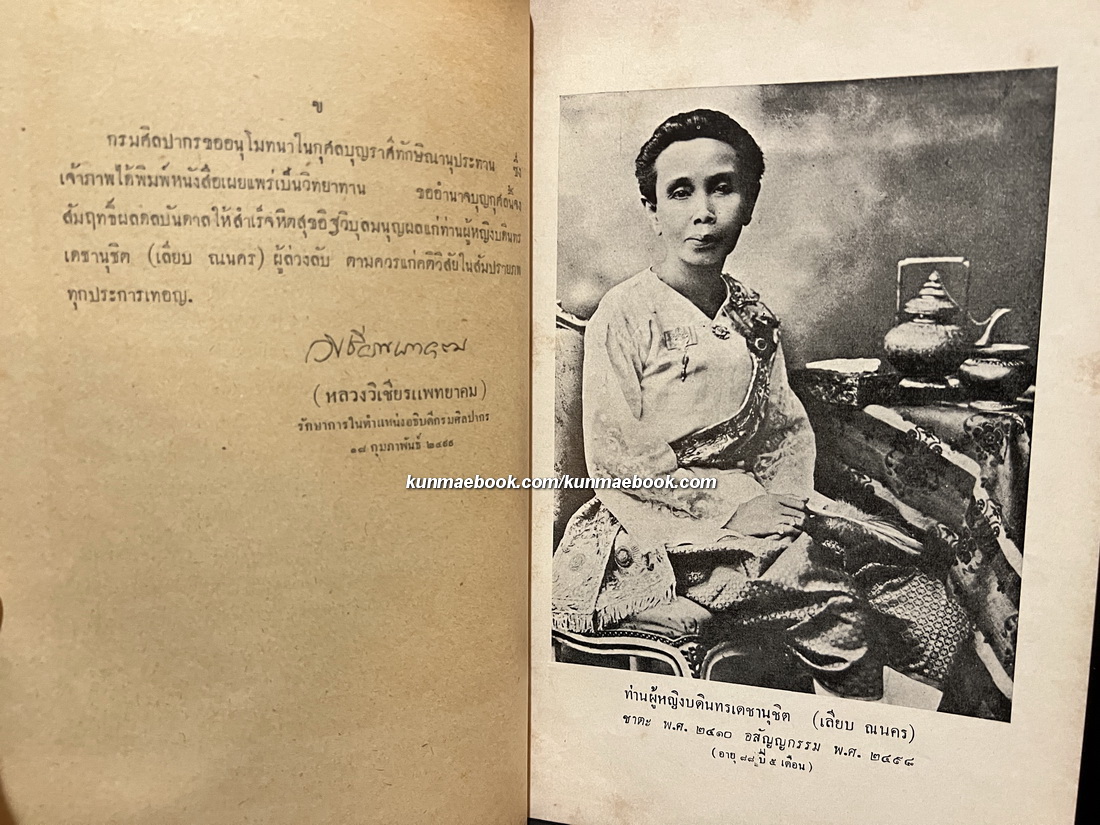 ข
กรมศิลปากรขออนุโมทนาในกุศลบุญราศีทักษิณานุประทาน ซึ่ง
เจ้าภาพได้พิมพ์หนังสือเผยแพร่เป็นวิทยาทาน ขออำนาจบุญกุศลนี้จง
สัมฤทธิ์ผลดลบันดาลให้สำเร็จหิตสุขอิฐวิบุลมนุญผลแก่ท่านผู้หญิงบดินทร
เดชานุชิต (เลียบ ณนคร) ผู้ล่วงลับ ตามควรแก่คติวิสัยในสัมปรายภพ
ทุกประการเทอญ.
(หลวงวิเชียรแพทยาคม)
รักษาการในตำแหน่งอธิบดีกรมศิลปากร
๑๘ กุมภาพันธ์ ๒๔๙๙
kunmaebook.com/kunmaebook.com
ท่านผู้หญิงบดินทรเดชานุชิต (เลียบ ณนคร)
ชาตะ พ.ศ. ๒๔๑๐ อสัญญกรรม พ.ศ. ๒๔๙๘
(อายุ ๘๘ ปี ๕ เดือน)